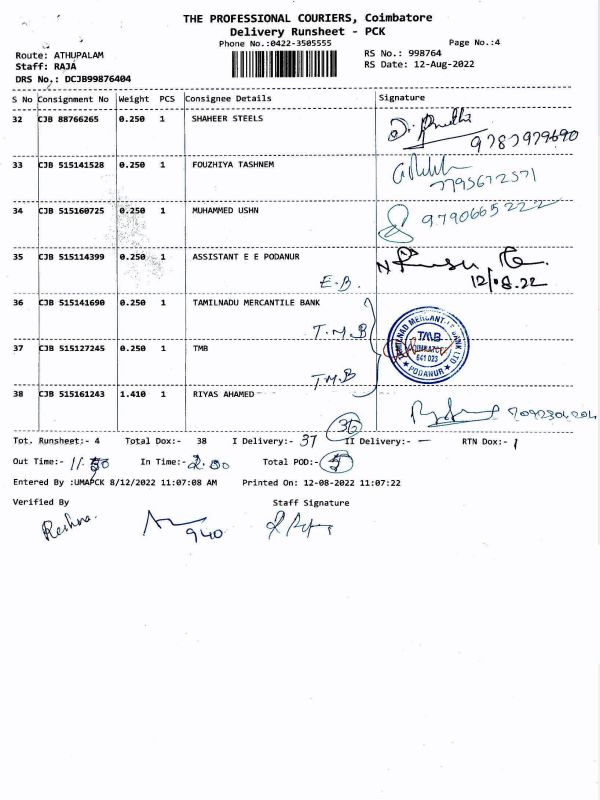 THE PROFESSIONAL COURIERS, Coimbatore
Delivery Runsheet - PCK
Phone No.:0422-3505555
Page No.:4
Route: ATHUPALAM
RS No.: 998764
Staff: RAJA
RS Date: 12-Aug-2022
DRS No.: DCJB99876404
S No Consignment No Weight PCS Consignee Details Signature
32 CJB 88766265 0.250 1 SHAHEER STEELS
9787979690
33 CJB 515141528 0.250 1 FOUZHIYA TASHNEM
7795672571
34 CJB 515160725 0.250 1 MUHAMMED USHN
9790665222
35 CJB 515114399 0.250 1 ASSISTANT E E PODANUR
E.B. 12/08.22
36 CJB 515141690 0.250 1 TAMILNADU MERCANTILE BANK
T.M.B
TAMILNAD MERCANTILE BANK LTD
TMB
COIMBATORE
641 023
PODANUR
37 CJB 515127245 0.250 1 TMB
T.M.B
38 CJB 515161243 1.410 1 RIYAS AHAMED
7092304204
36
Tot. Runsheet:- 4 Total Dox:- 38 I Delivery:- 37 II Delivery:- — RTN Dox:- 1
Out Time:- 11.50 In Time:- 2.00 Total POD:-
Entered By :UMAPCK 8/12/2022 11:07:08 AM Printed On: 12-08-2022 11:07:22
Verified By Staff Signature
Reshna.
940